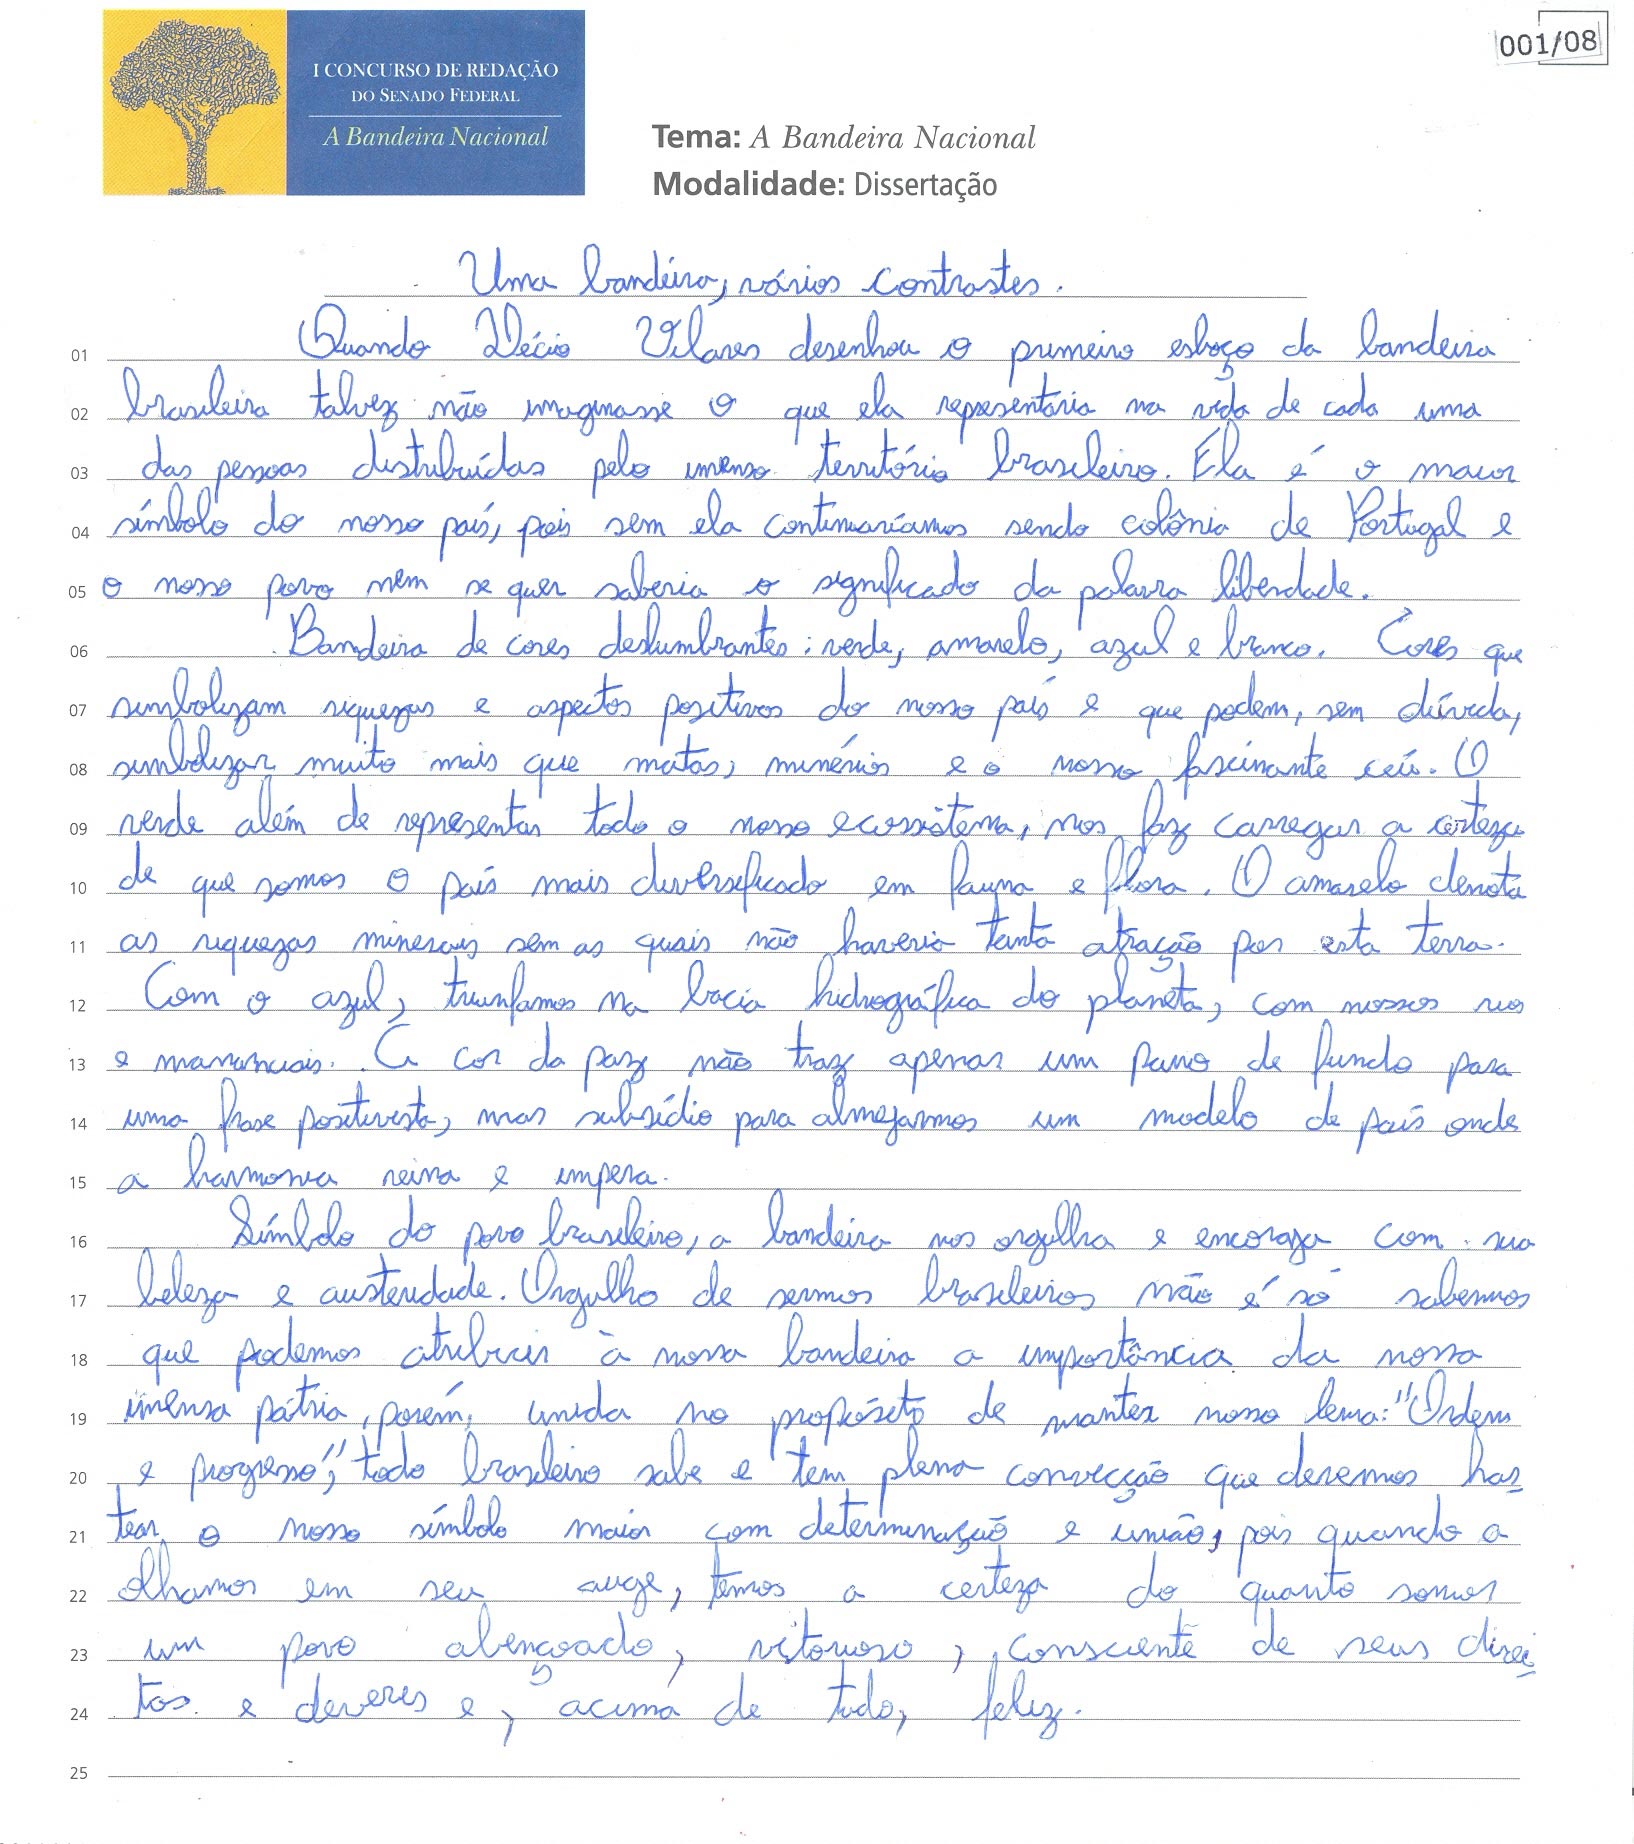 001/08
I CONCURSO DE REDAÇÃO
DO SENADO FEDERAL
A Bandeira Nacional
Tema: A Bandeira Nacional
Modalidade: Dissertação
Uma bandeira, vários contrastes.
01 Quando Décio Vilares desenhou o primeiro esboço da bandeira
02 brasileira talvez não imaginasse o que ela representaria na vida de cada uma
03 das pessoas distribuídas pelo imenso território brasileiro. Ela é o maior
04 símbolo do nosso país, pois sem ela continuaríamos sendo colônia de Portugal e
05 o nosso povo nem se quer saberia o significado da palavra liberdade.
06 Bandeira de cores deslumbrantes: verde, amarelo, azul e branco. Cores que
07 simbolizam riquezas e aspectos positivos do nosso país e que podem, sem dúvida,
08 simbolizar muito mais que matas, minérios e o nosso fascinante céu. O
09 verde além de representar todo o nosso ecossistema, nos faz carregar a certeza
10 de que somos o país mais diversificado em fauna e flora. O amarelo denota
11 as riquezas minerais sem as quais não haveria tanta atração por esta terra.
12 Com o azul, triunfamos na bacia hidrográfica do planeta, com nossos rios
13 e mananciais. A cor da paz não traz apenas um pano de fundo para
14 uma frase positivista, mas subsídio para almejarmos um modelo de país onde
15 a harmonia reina e impera.
16 Símbolo do povo brasileiro, a bandeira nos orgulha e encoraja com sua
17 beleza e austeridade. Orgulho de sermos brasileiros não é só sabermos
18 que podemos atribuir à nossa bandeira a importância da nossa
19 imensa pátria, porém, unida no propósito de manter nosso lema: "Ordem
20 e progresso", todo brasileiro sabe e tem plena convicção que devemos has-
21 tear o nosso símbolo maior com determinação e união, pois quando a
22 olhamos em seu auge, temos a certeza do quanto somos
23 um povo abençoado, vitorioso, consciente de seus direi-
24 tos e deveres e, acima de tudo, feliz.
25